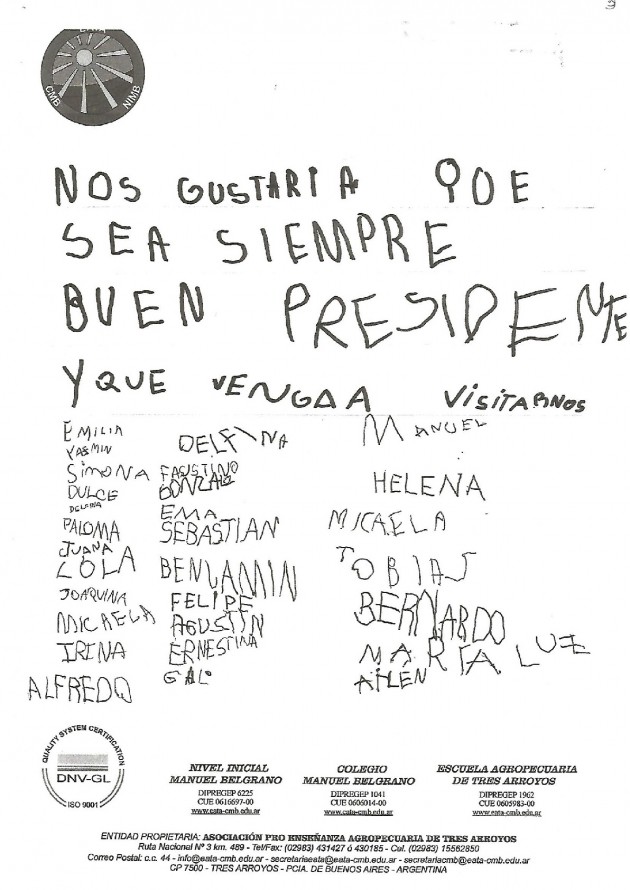 CMB
NIMB
NOS GUSTARIA QUE
SEA SIEMPRE
BUEN PRESIDENTE
Y QUE VENGA A VISITARNOS
EMILIA
YASMIN
SIMONA
DULCE
DELFINA
PALOMA
JUANA
LOLA
JOAQUINA
MICAELA
IRINA
ALFREDO
DELFINA
FAUSTINO
GONZALO
EMA
SEBASTIAN
BENJAMIN
FELIPE
AGUSTIN
ERNESTINA
GAL
MANUEL
HELENA
MICAELA
TOBIAS
BERNARDO
MARIA LUZ
AILEN
QUALITY SYSTEM CERTIFICATION
DNV-GL
ISO 9001
NIVEL INICIAL
MANUEL BELGRANO
DIPREGEP 6225
CUE 0616697-00
www.eata-cmb.edu.ar
COLEGIO
MANUEL BELGRANO
DIPREGEP 1041
CUE 0606014-00
www.eata-cmb.edu.ar
ESCUELA AGROPECUARIA
DE TRES ARROYOS
DIPREGEP 1962
CUE 0605983-00
www.eata-cmb.edu.ar
ENTIDAD PROPIETARIA: ASOCIACIÓN PRO ENSEÑANZA AGROPECUARIA DE TRES ARROYOS
Ruta Nacional Nº 3 km. 489 - Tel/Fax: (02983) 431427 ó 430185 - Cel. (02983) 15562850
Correo Postal: c.c. 44 - info@eata-cmb.edu.ar - secretariaeata@eata-cmb.edu.ar - secretariacmb@eata-cmb.edu.ar
CP 7500 - TRES ARROYOS - PCIA. DE BUENOS AIRES - ARGENTINA